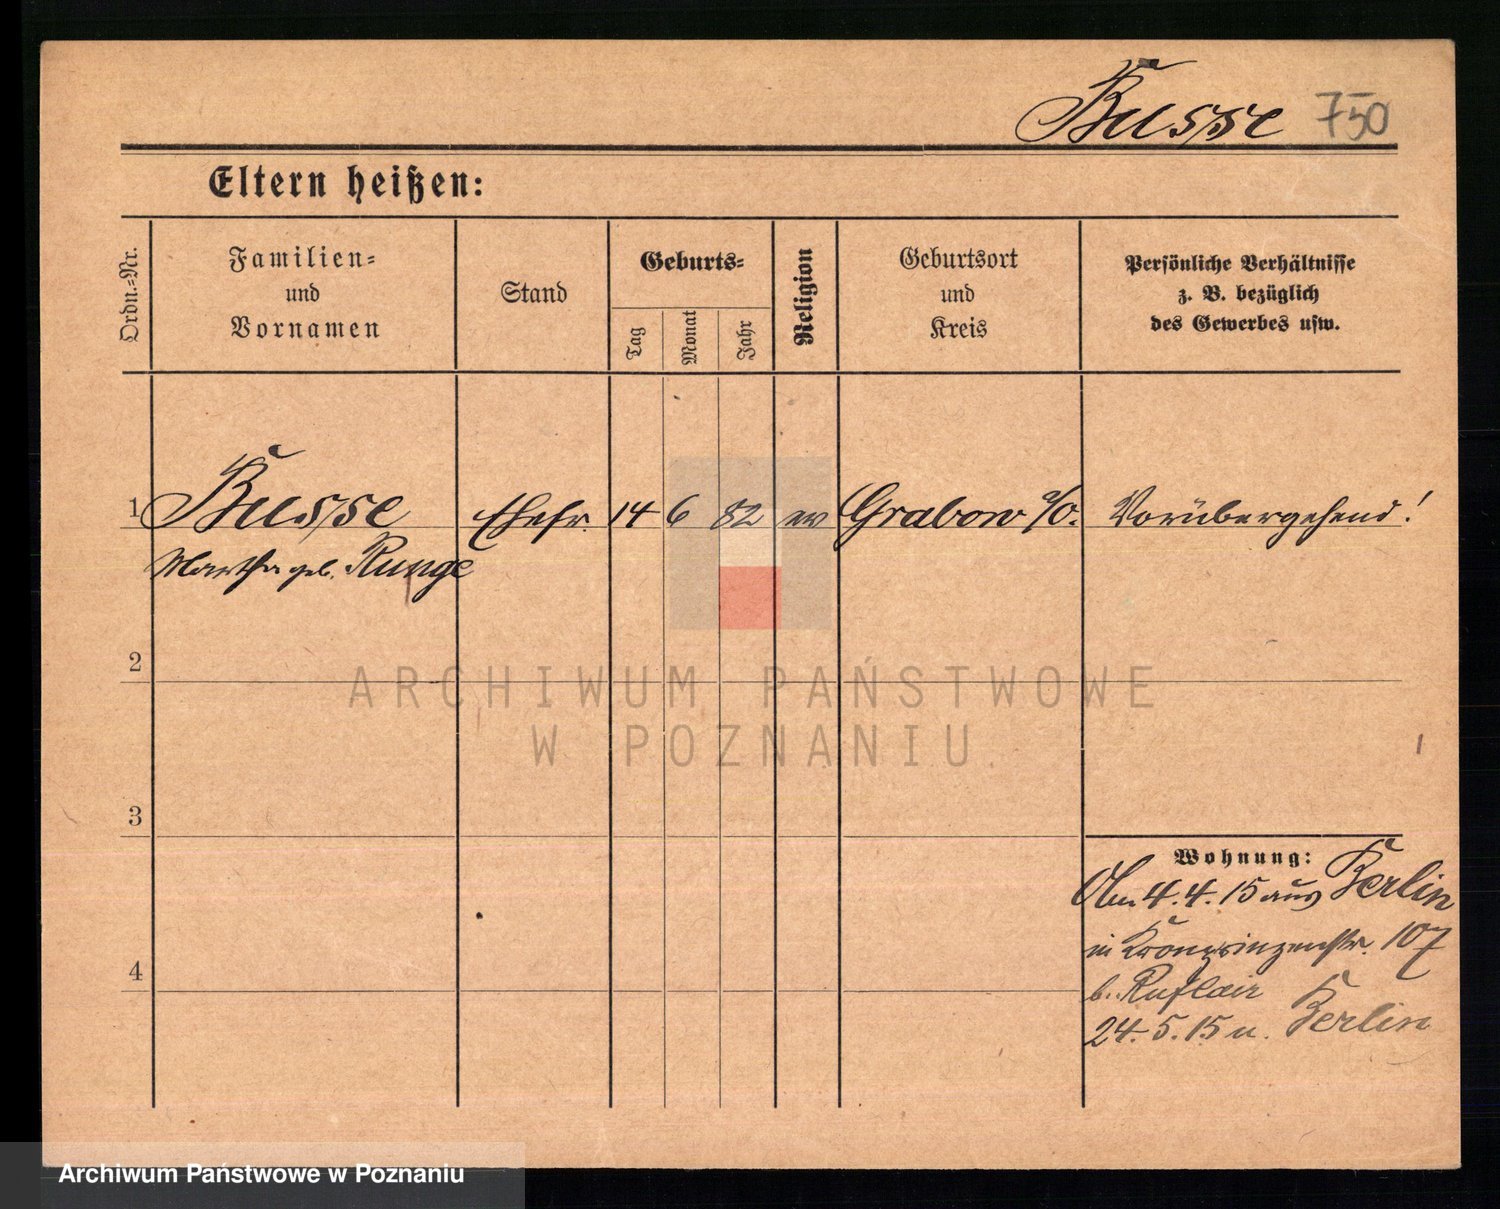 Busse 750
Eltern heißen:
Ordn.-Nr.
Familien-
und
Vornamen
Stand
Geburts-
Tag
Monat
Jahr
Religion
Geburtsort
und
Kreis
Persönliche Verhältnisse
z. B. bezüglich
des Gewerbes usw.
1 Busse Ehefr. 14 6 82 ev Grabow a/O. Vorübergehend!
Martha geb. Runge
2
ARCHIWUM PAŃSTWOWE
W POZNANIU
3
Wohnung:
Am 4.4.15 aus Berlin
in Kronprinzenstr. 107
4
b.
24.5.15 n. Berlin
Archiwum Państwowe w Poznaniu